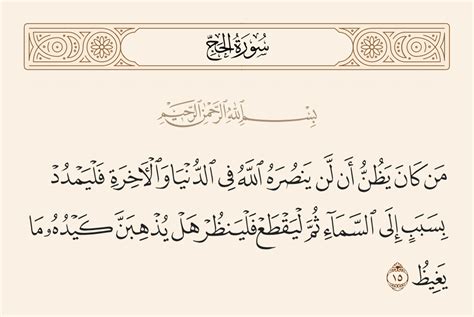 سُورَةُ الحَجِّ
بِسْمِ ٱللَّهِ ٱلرَّحْمَٰنِ ٱلرَّحِيمِ
مَن كَانَ يَظُنُّ أَن لَّن يَنصُرَهُ ٱللَّهُ فِي ٱلدُّنْيَا وَٱلْأَخِرَةِ فَلْيَمْدُدْ
بِسَبَبٍ إِلَى ٱلسَّمَآءِ ثُمَّ لْيَقْطَعْ فَلْيَنظُرْ هَلْ يُذْهِبَنَّ كَيْدُهُۥ مَا
يَغِيظُ ١٥